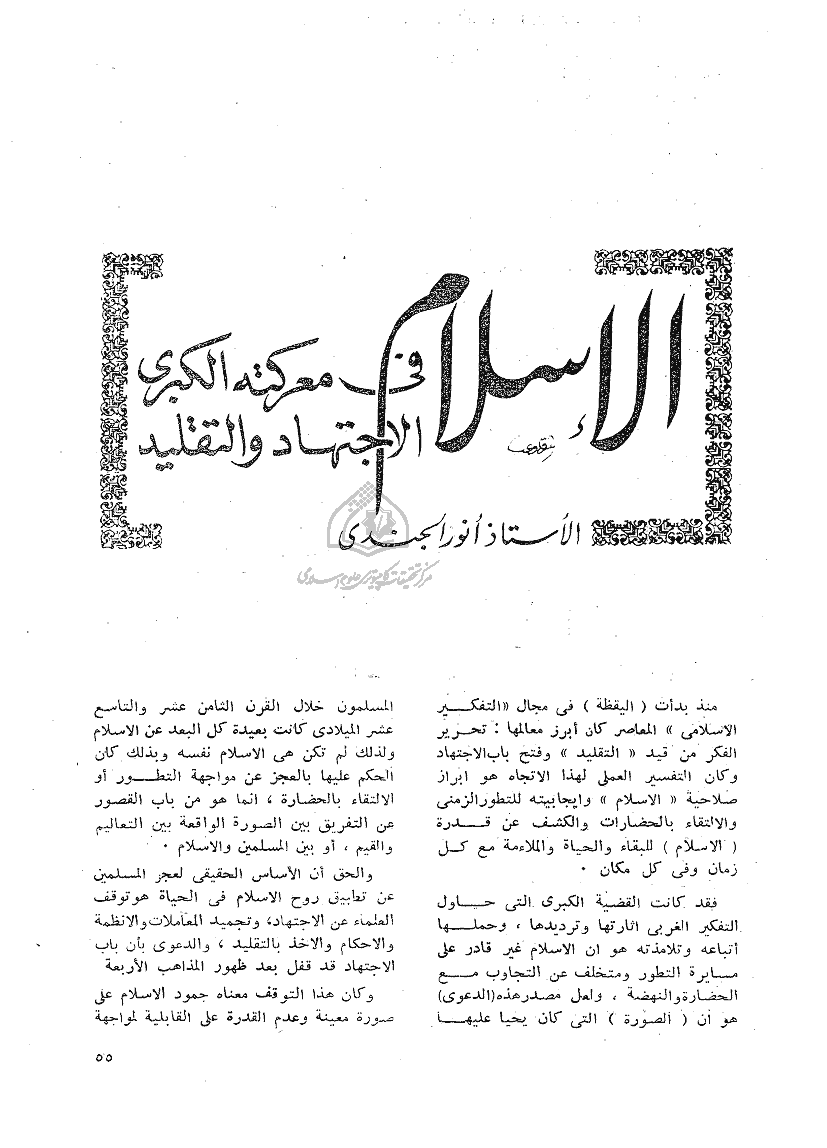 الإسلام
في معركته الكبرى
الاجتهاد والتقليد
الأستاذ أنور الجندى
مركز تحقيقات كامپيوترى علوم اسلامى
منذ بدأت ( اليقظة ) فى مجال «التفكـــير
الاسلامى » المعاصر كان أبرز معالمها : تحرير
الفكر من قيد « التقليد » وفتح باب الاجتهاد
وكان التفسير العملى لهذا الاتجاه هو ابراز
صلاحية « الاسلام » وايجابيته للتطور الزمنى
والالتقاء بالحضارات والكشف عن قـــدرة
( الاسلام ) للبقاء والحياة والملاءمة مع كـــل
زمان وفى كل مكان ٠
فقد كانت القضية الكبرى التى حـــاول
التفكير الغربى اثارتها وترديدها ، وحملـــها
أتباعه وتلامذته هو ان الاسلام غير قادر على
مسايرة التطور ومتخلف عن التجاوب مـــع
الحضارة والنهضة ، ولعل مصدر هذه (الدعوى)
هو أن ( الصورة ) التى كان يحيا عليهـــا
المسلمون خلال القرن الثامن عشر والتاسع
عشر الميلادى كانت بعيدة كل البعد عن الاسلام
ولذلك لم تكن هى الاسلام نفسه وبذلك كان
الحكم عليها بالعجز عن مواجهة التطـــور أو
الالتقاء بالحضارة ، انما هو من باب القصور
عن التفريق بين الصورة الواقعة بين التعاليم
والقيم ، أو بين المسلمين والاسلام ٠
والحق أن الأساس الحقيقى لعجز المسلمين
عن تطبيق روح الاسلام فى الحياة هو توقف
العلماء عن الاجتهاد، وتجميد المعاملات والانظمة
والاحكام والاخذ بالتقليد ، والدعوى بأن باب
الاجتهاد قد قفل بعد ظهور المذاهب الأربعة
وكان هذا التوقف معناه جمود الاسلام على
صورة معينة وعدم القدرة على القابلية لمواجهة
٥٥